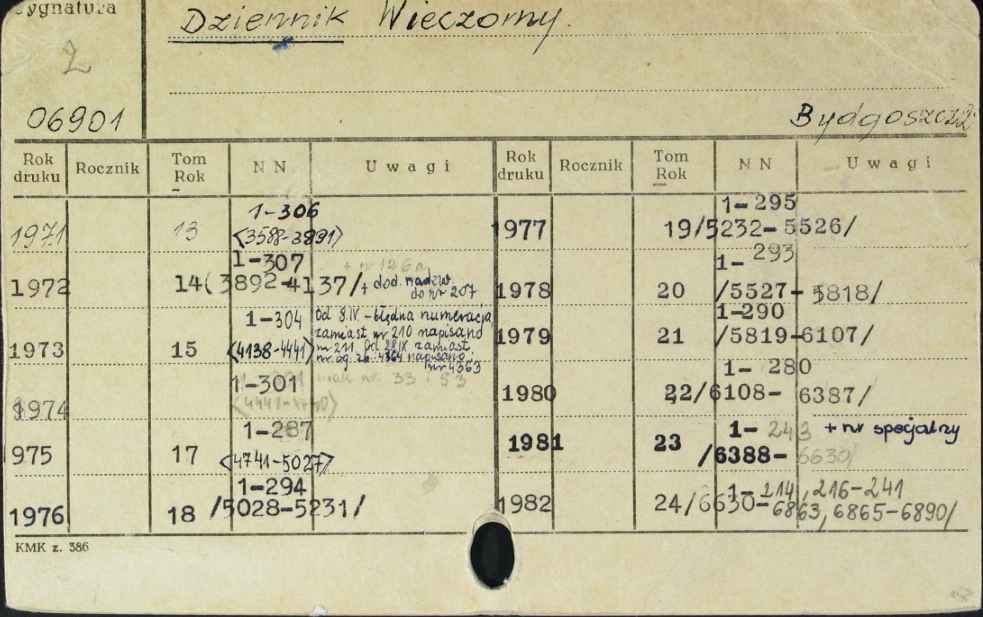 Sygnatura
Dziennik Wieczorny.
Z
06901
Bydgoszcz
Rok druku Rocznik Tom Rok NN Uwagi Rok druku Rocznik Tom Rok NN Uwagi
1971 13 1-306
<3588-3891>
1972 14 1-307
(3892-4137/ + dod. nadzw.
do nr 207
1973 15 1-304
<4138-4441>
Od 8.IV - błędna numeracja
zamiast nr 210 napisano
nr 211. Od 28.IX zamiast
nr og. 4364 napisano
nr 4363
1974 1-301
brak nr. 33 i 53
975 17 1-287
<4741-5027>
1976 18 1-294
/5028-5231/
1977 19 1-295
/5232-5526/
1978 20 1-293
/5527-5818/
1979 21 1-290
/5819-6107/
1980 22 1-280
/6108-6387/
1981 23 1-243 + nr specjalny
/6388-6630/
1982 24 1-214, 216-241
/6630-6863, 6865-6890/
KMK z. 386